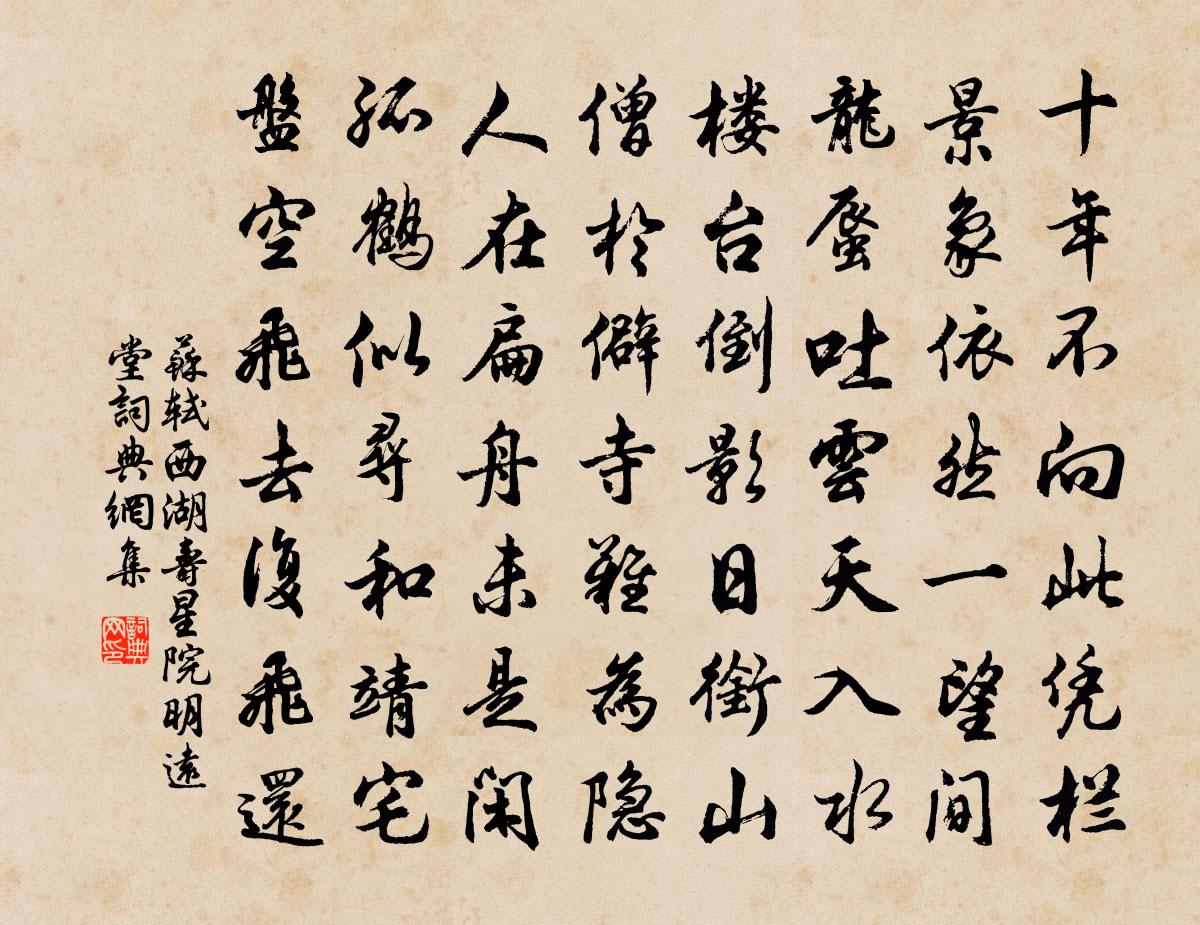 十年不向此凭栏
景象依然一望间
龍蜃吐雲天入水
楼台倒影日銜山
僧於僻寺難為隐
人在扁舟未是闲
孤鶴似尋和靖宅
盤空飛去復飛還
蘇軾西湖壽星院明遠
堂詞典網集
詞典
网印